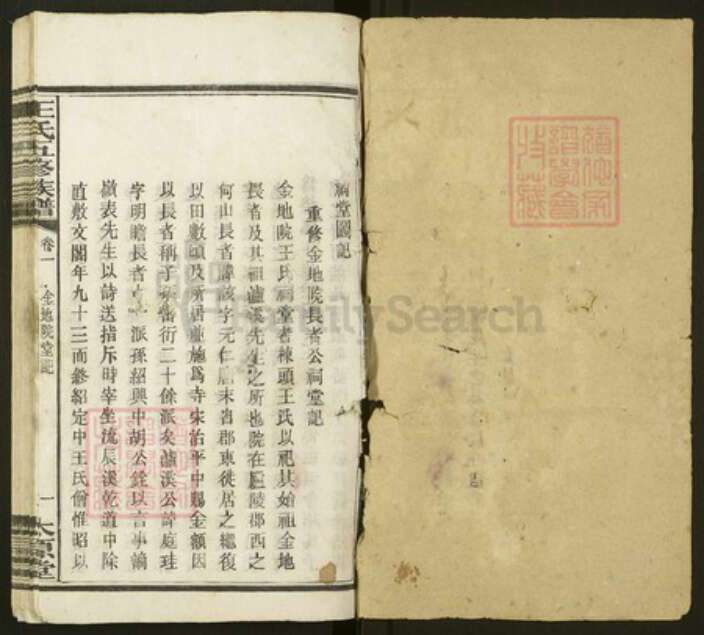 祠堂圖記
重修金地院長者公祠堂記
金地院王氏祠堂者棟頭王氏以祀其始祖金地
長者及其祖瀘溪先生之所也院在廬陵郡西之
何山長者諱該字元仁唐末省郡東徙居之繼復
以田數頃及所居並施爲寺宋治平中賜金額因
以長者稱子孫當衍二十餘派矣瀘溪公諱庭珪
字明瞻長者十一派孫紹興中胡公銓以言事謫
嶺表先生以詩送指斥時宰坐流辰溪乾道中除
直敷文閣年九十三而終紹定中王氏僧惟昭以
王氏五修族譜
卷一
金地院堂記
一
太原堂
FamilySearch